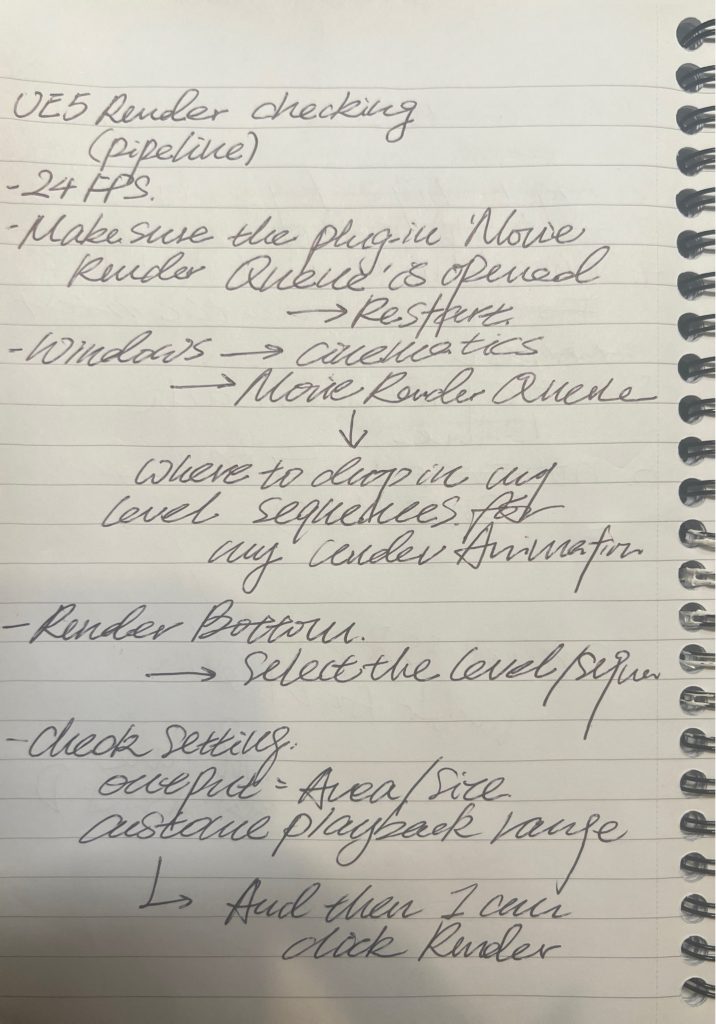 UE5 Render checking
(pipeline)
- 24 FPS.
- Make sure the plug-in 'Movie
Render Queue' is opened
→ Restart.
- Windows → cinematics
→ Movie Render Queue
↓
Where to drop in my
level sequences for
my render Animation
- Render Bottom.
→ Select the level/
- Check Setting:
output = Area/Size
custome playback range
↳ And then I can
click Render